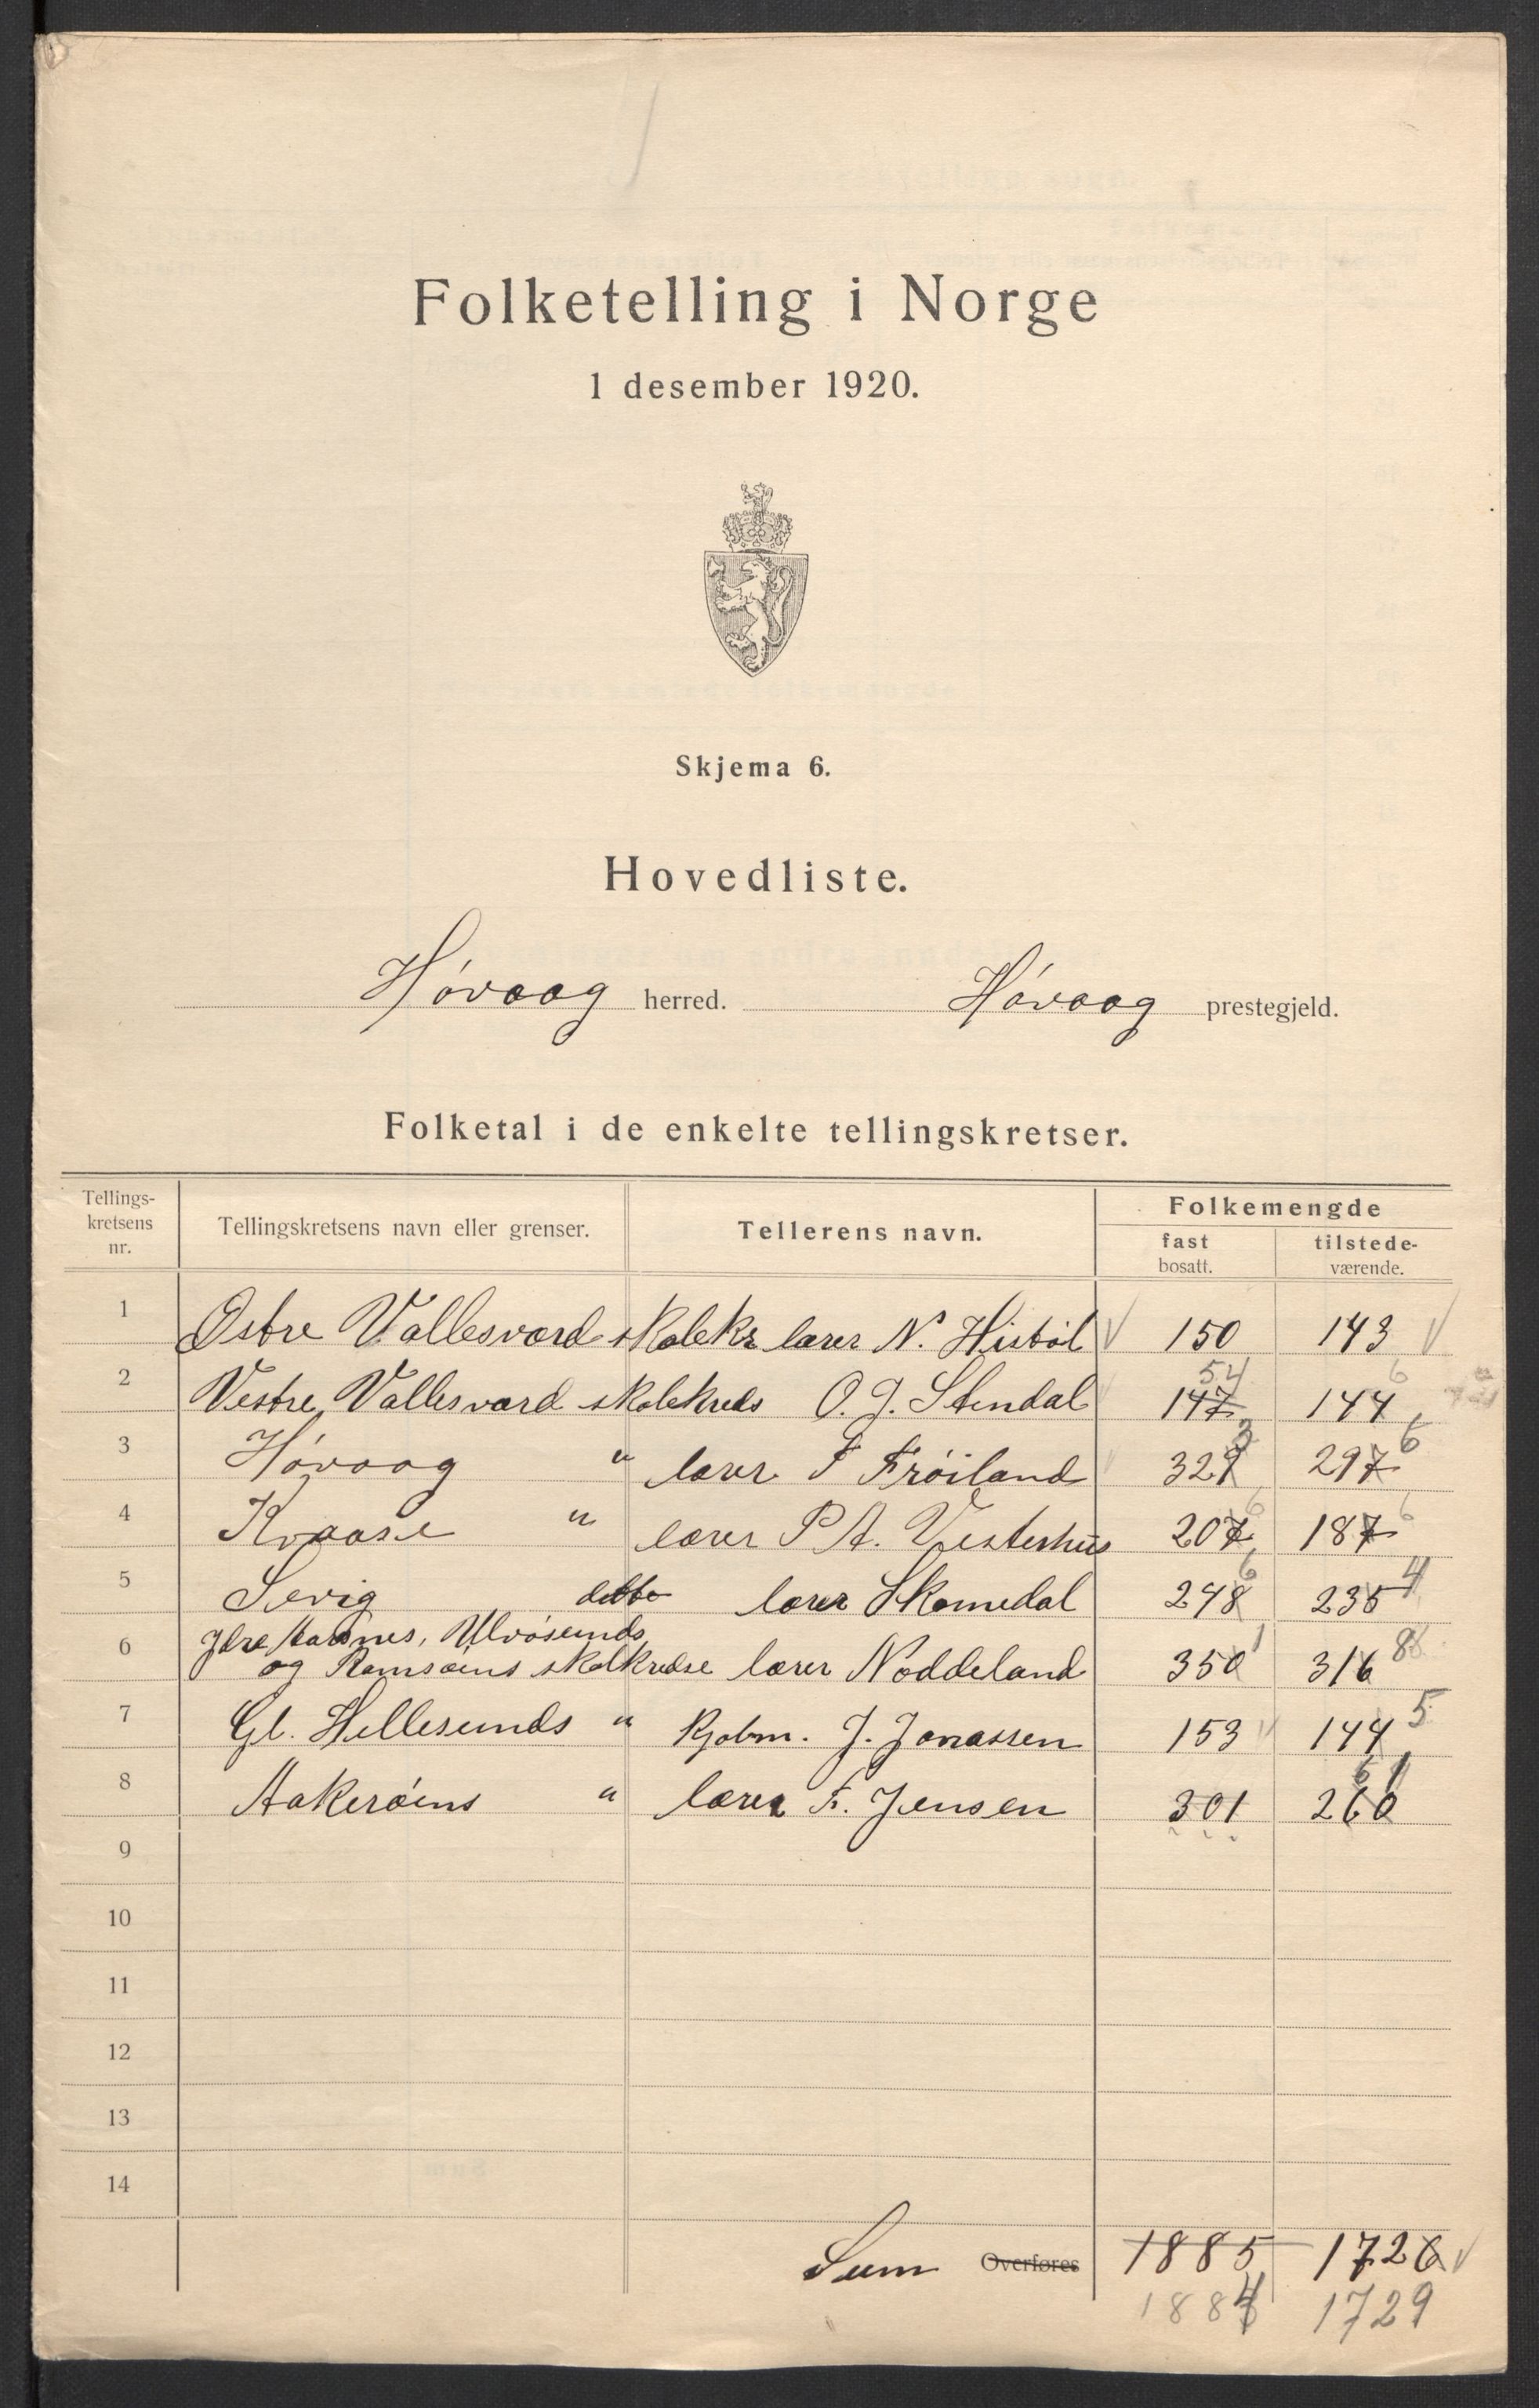 Folketelling i Norge
1 desember 1920.
Skjema 6.
Hovedliste.
Høvaag herred. Høvaag prestegjeld.
Folketal i de enkelte tellingskretser.
Tellings-
kretsens
nr.
Tellingskretsens navn eller grenser.
Tellerens navn.
Folkemengde
fast
bosatt.
tilstede-
værende.
1 Østre Vallesværd skolekr lærer N. Histøl 150 143
54 6
2 Vestre Vallesværd skolekreds O. J. Stendal 147 144
3 6
3 Høvaag " lærer F Frøiland 329 297
6 6
4 Kvaase " lærer P A. Vesterhus 207 187
6 4
5 Sævig ditto lærer Skomedal 248 235
6 Ydre Ulvøsunds
1 8
og Ramsøens skolkredse lærer Noddeland 350 316
5
7 Gl. Hellesunds " Kjøbm. J. Jonassen 153 144
61
8 Aakerøens " lærer F. Jensen 301 260
9
10
11
12
13
14
Sum Overføres 1885 1726
1884 1729